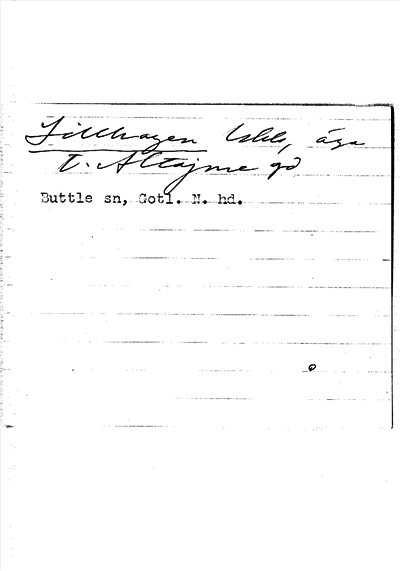 Lillhagen lhl, äga
t. Altajme gd
Buttle sn, Gotl. N. hd.